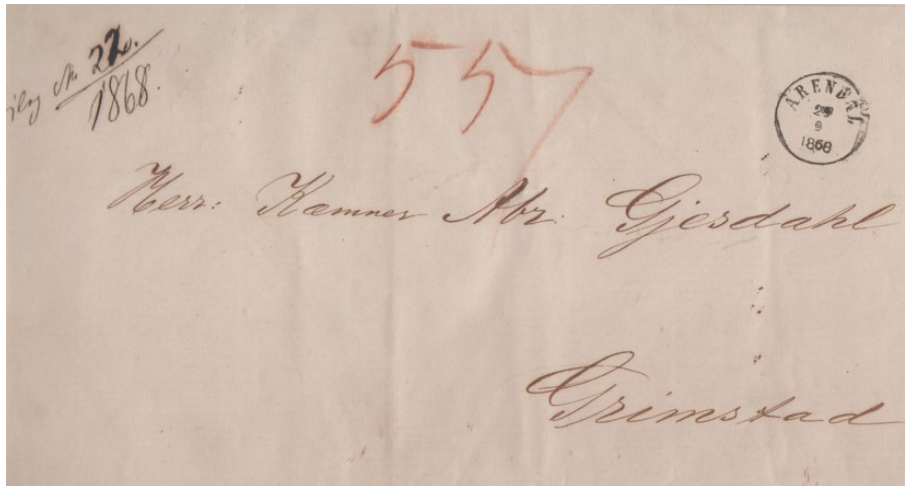 № 22.
1868.
557
ARENDAL
29
9
1868
Herr: Kæmner Abr: Gjesdahl
Grimstad